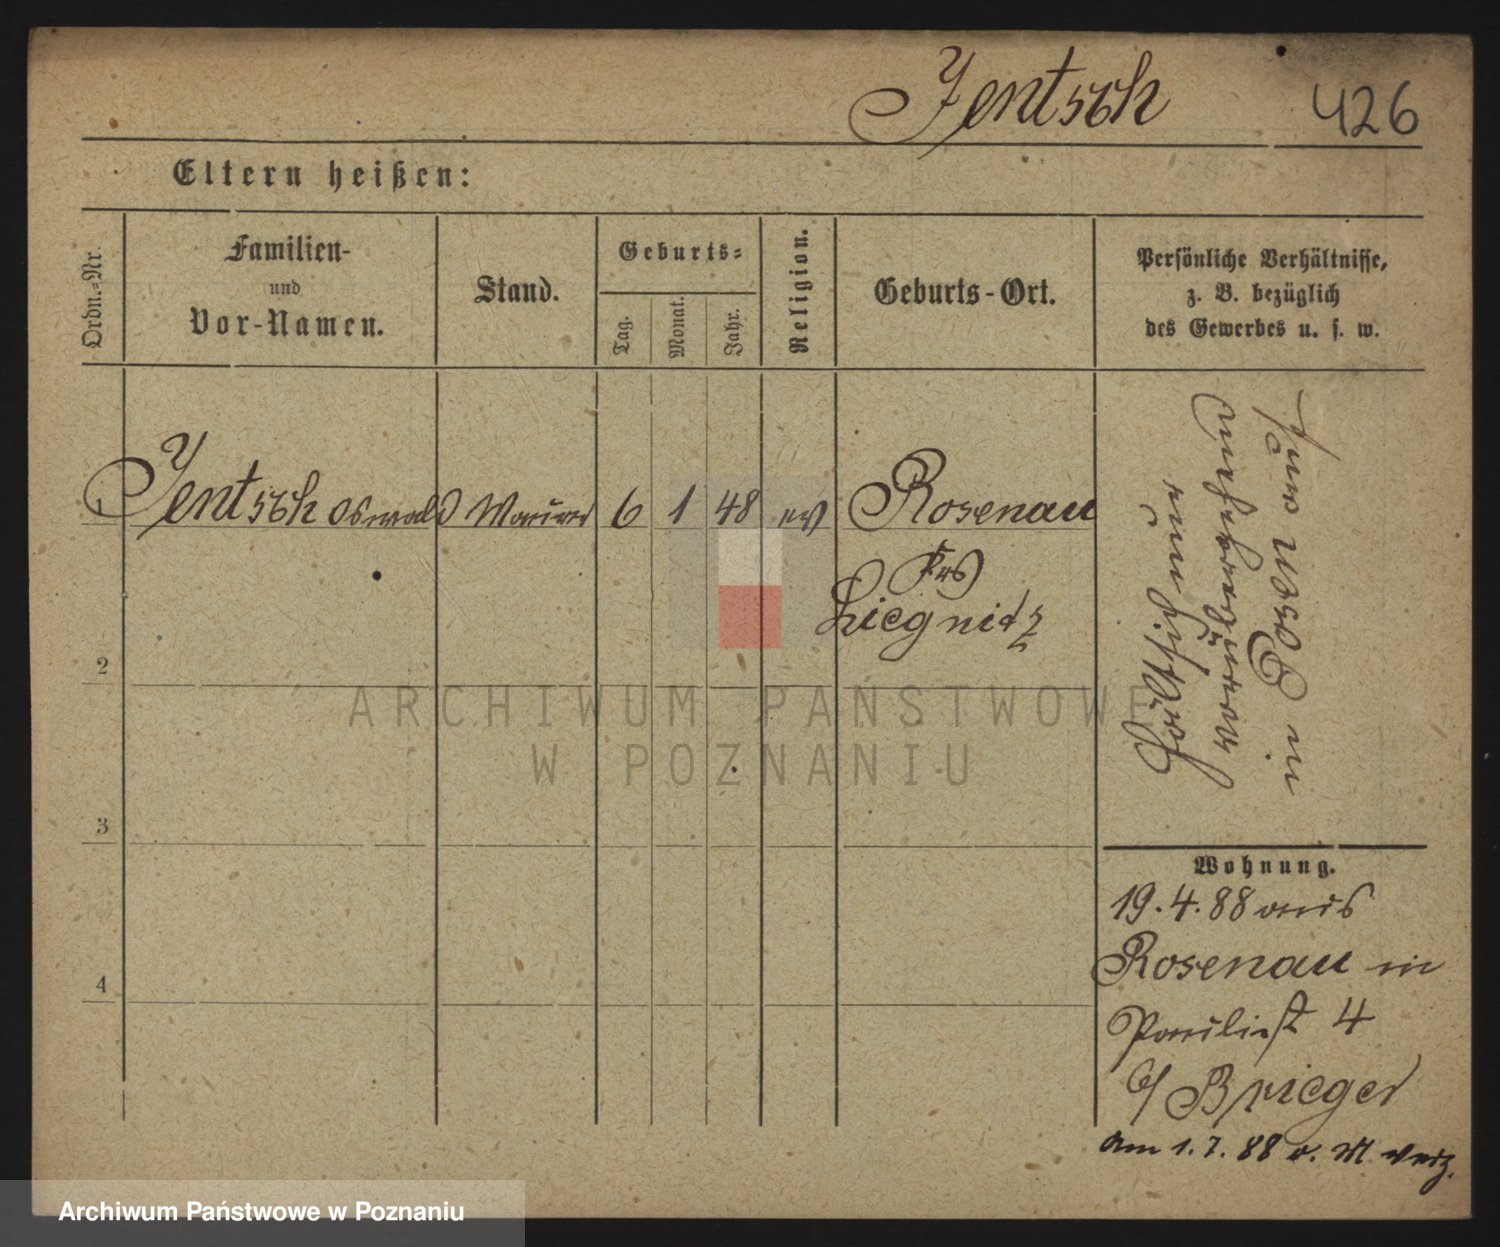 Jentsch 426
Eltern heißen:
Ordn.=Nr.
Familien-
und
Vor-Namen.
Stand.
Geburts=
Tag.
Monat.
Jahr.
Religion.
Geburts-Ort.
Persönliche Verhältnisse,
z. B. bezüglich
des Gewerbes u. s. w.
1 Jentsch Oswald Maurer 6 1 48 ev Rosenau
Krs
Liegnitz
2
3
4
in Posen
Wohnung.
19.4.88 aus
Rosenau in
Paulist 4
b/ Brieger
Am 1.7.88 o. M verz.
ARCHIWUM PAŃSTWOWE
W POZNANIU
Archiwum Państwowe w Poznaniu